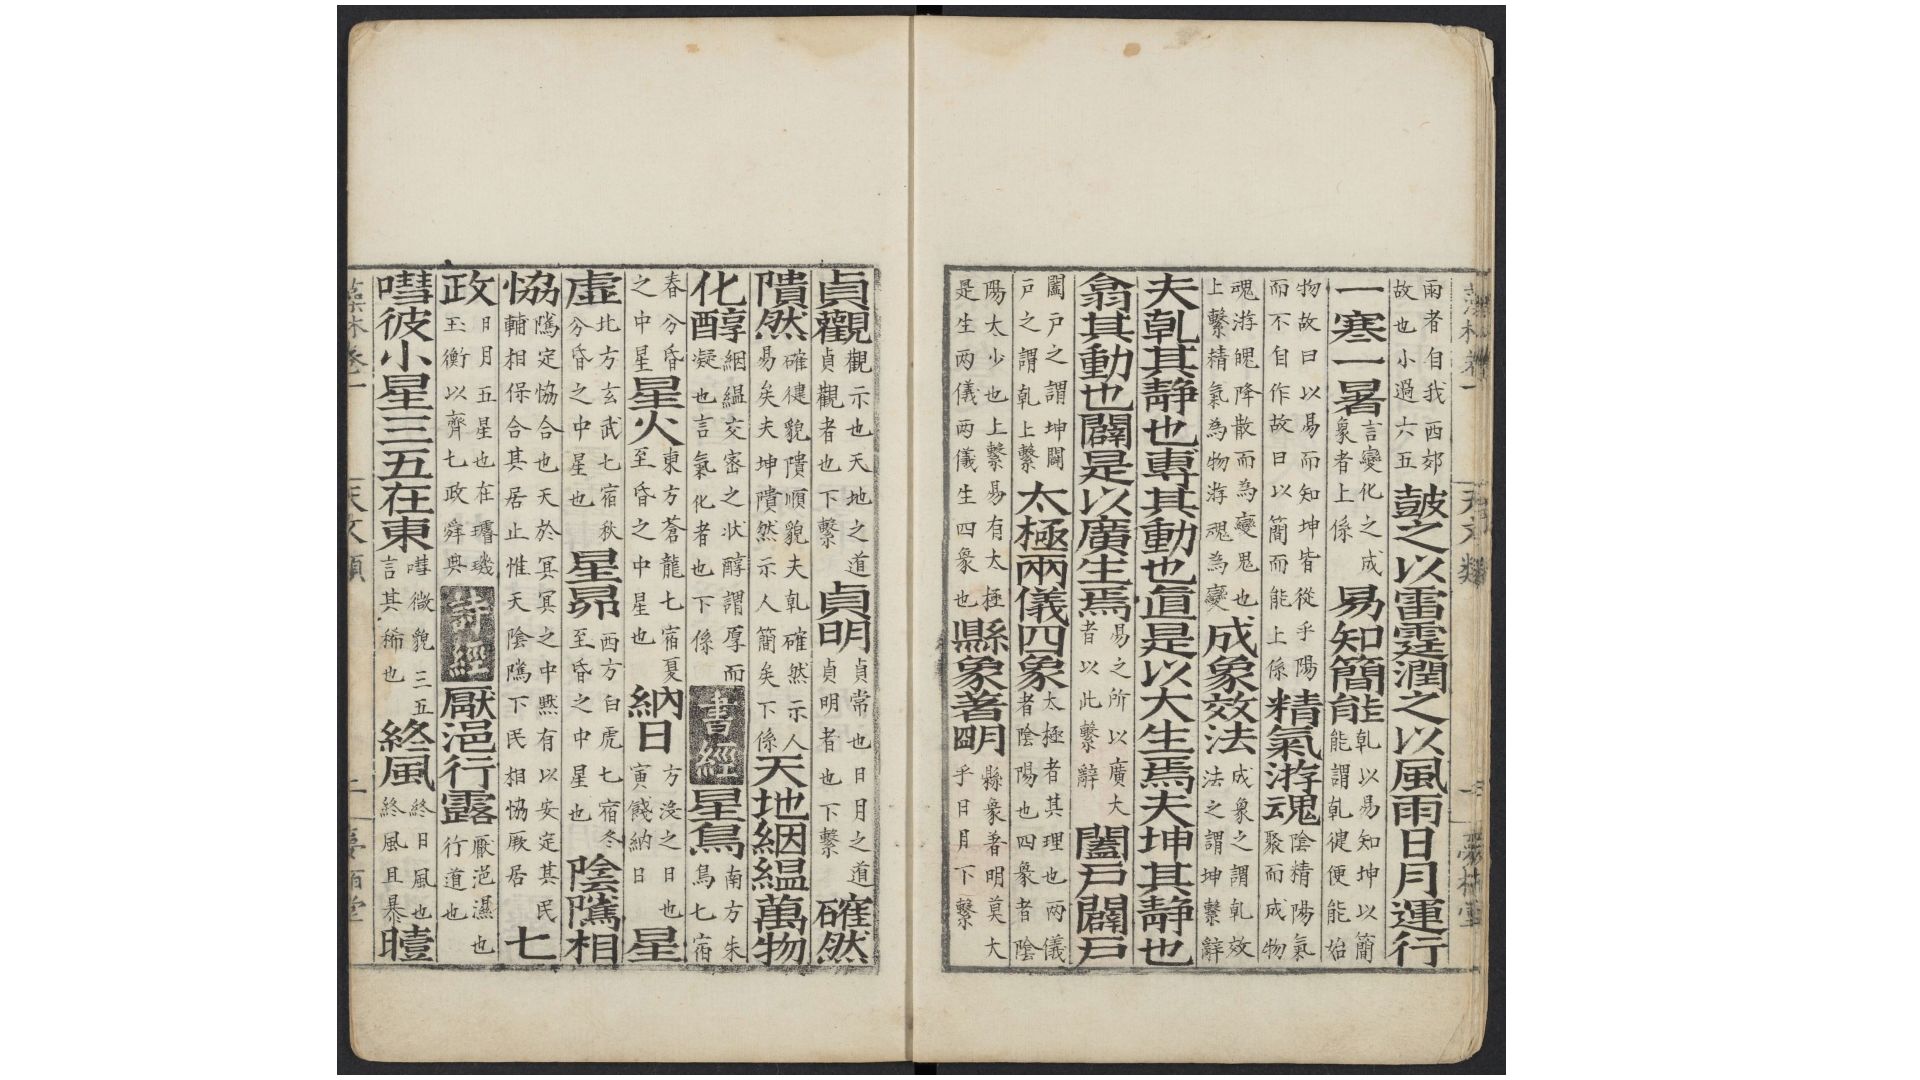 雨者自我西郊故也小過六五鼓之以雷霆潤之以風雨日月運行
一寒一暑言變化之成象者上係易知簡能乹以易知坤以簡能謂乹徤便能始
物故曰以易而知坤皆從乎陽而不自作故曰以簡而能上係精氣游魂陰精陽氣聚而成物
魂游魄降散而為變鬼也上繫精氣為物游魂為變成象效法成象之謂乹效法之謂坤繫辭
夫乹其静也專其動也直是以大生焉夫坤其静也
翕其動也闢是以廣生焉易之所以廣大者以此繫辭闔戸闢戸
闔戸之謂坤闢戸之謂乹上繫太極兩儀四象太極者其理也两儀者陰陽也四象者陰
陽太少也上繫易有太極是生两儀两儀生四象也縣象著明縣象著明莫大乎日月下繫
貞觀觀示也天地之道貞觀者也下繫貞明貞常也日月之道貞明者也下繫確然
隤然確徤貌隤順貌夫乹確然示人易矣夫坤隤然示人簡矣下係天地絪緼萬物
化醇絪緼交密之状醇謂厚而凝也言氣化者也下係書經星鳥南方朱鳥七宿
春分昏之中星星火東方蒼龍七宿夏至昏之中星也納日方没之日也寅餞納日星
虚北方玄武七宿秋分昏之中星也星昴西方白虎七宿冬至昏之中星也陰隲相
恊隲定恊合也天於冥冥之中黙有以安定其民輔相保合其居止惟天陰隲下民相恊厥居七
政日月五星也在璿璣玉衡以齊七政舜典詩經厭浥行露厭浥濕也行道也
嘒彼小星三五在東嘒微貌三五言其稀也終風終日風也終風且暴曀
藻林卷一 天文類 二